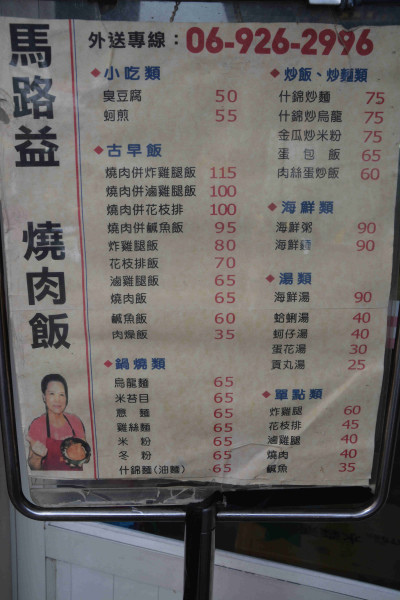 馬路益 燒肉飯
外送專線：06-926-2996
◆小吃類
臭豆腐 50
蚵煎 55
◆古早飯
燒肉併炸雞腿飯 115
燒肉併滷雞腿飯 100
燒肉併花枝排 100
燒肉併鹹魚飯 95
炸雞腿飯 80
花枝排飯 70
滷雞腿飯 65
燒肉飯 65
鹹魚飯 60
肉燥飯 35
◆鍋燒類
烏龍麵 65
米苔目 65
意麵 65
雞絲麵 65
米粉 65
冬粉 65
什錦麵(油麵) 65
◆炒飯、炒麵類
什錦炒麵 75
什錦炒烏龍 75
金瓜炒米粉 75
蛋包飯 65
肉絲蛋炒飯 60
◆海鮮類
海鮮粥 90
海鮮麵 90
◆湯類
海鮮湯 90
蛤蜊湯 40
蚵仔湯 40
蛋花湯 30
貢丸湯 25
◆單點類
炸雞腿 60
花枝排 45
滷雞腿 40
燒肉 40
鹹魚 35